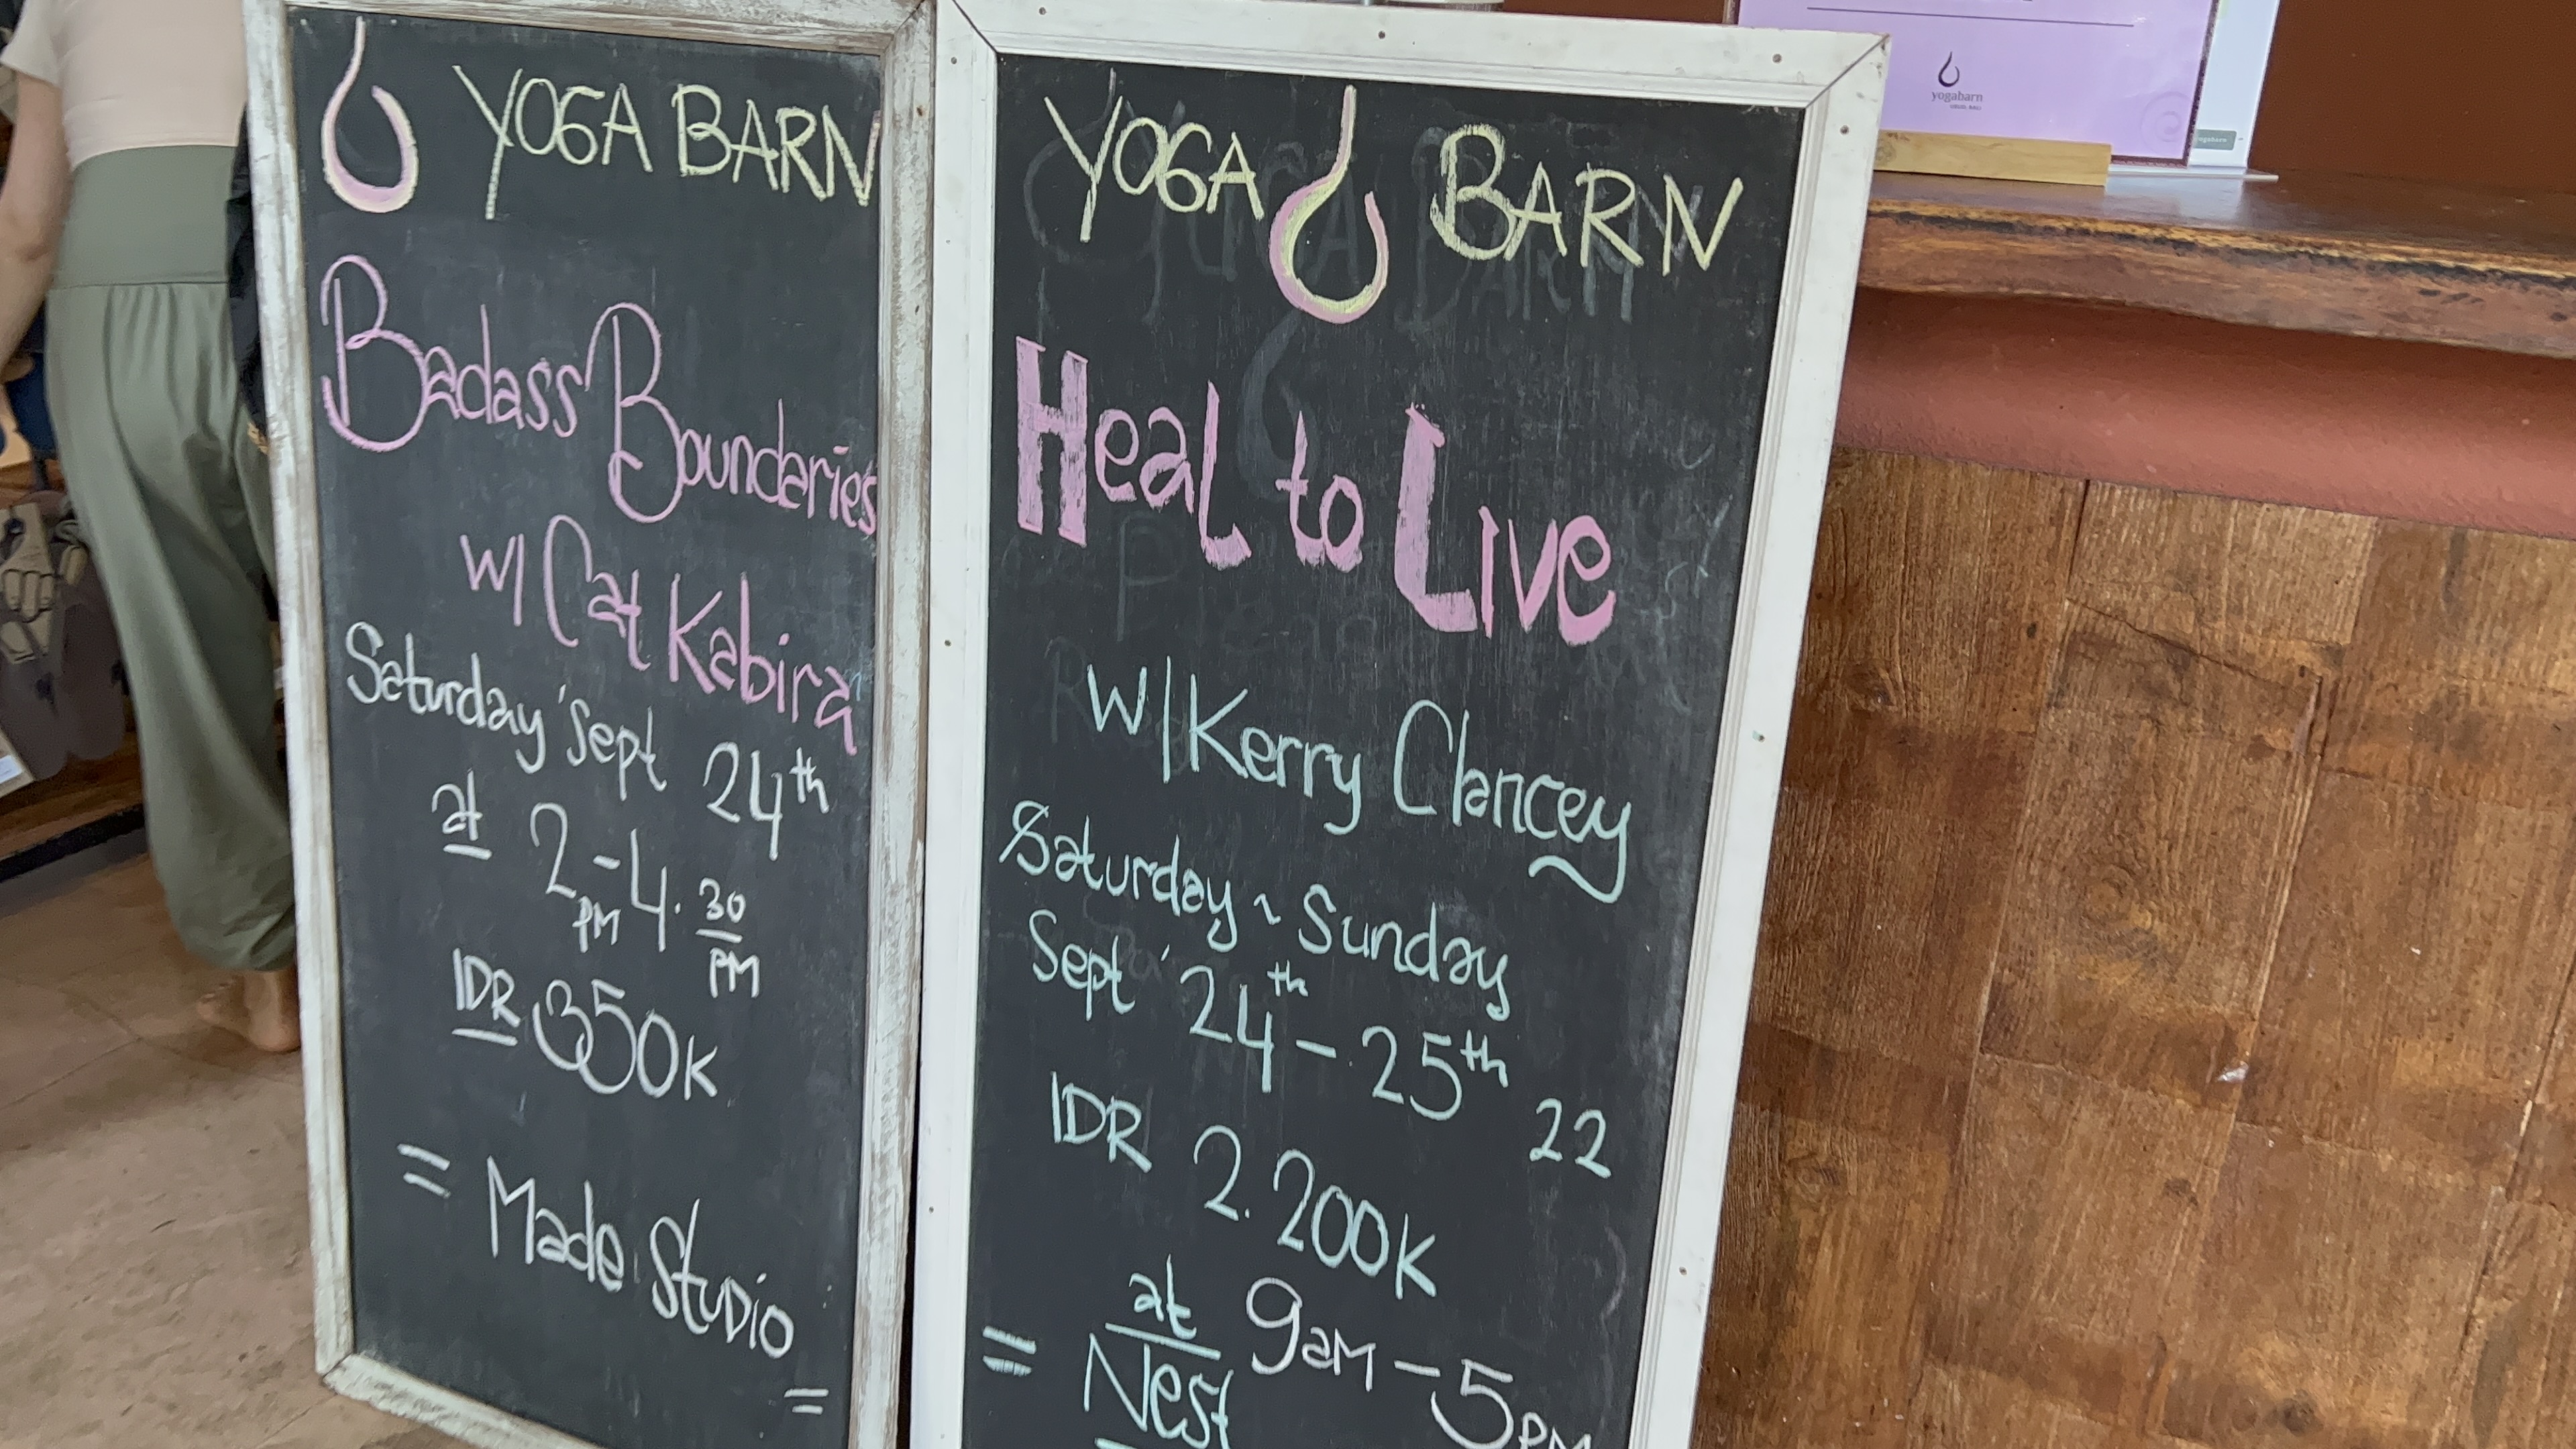 YOGA BARN
Badass Boundaries
w/ Cat Kabira
Saturday Sept 24th
at 2PM - 4.30 PM
IDR 350K
= Made Studio =
YOGA BARN
Heal to Live
w/ Kerry Clancey
Saturday ~ Sunday
Sept' 24th - 25th 22
IDR 2.200K
at 9am - 5PM
= Nest
yogabarn